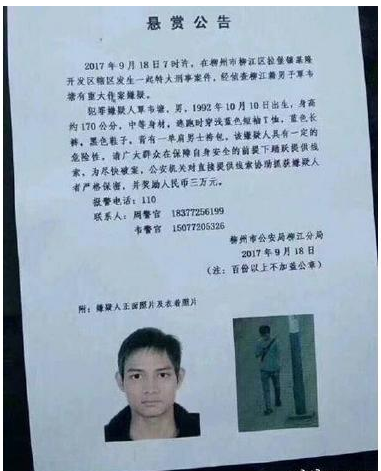 悬赏公告
2017年9月18日7时许，在柳州市柳江区拉堡镇基隆
开发区辖区发生一起特大刑事案件，经侦查柳江籍男子覃韦
有重大作案嫌疑。
犯罪嫌疑人覃韦，男，1992年10月10日出生，身高
约170公分，中等身材，逃跑时穿浅蓝色短袖T恤，蓝色长
裤，黑色鞋子，背有一单肩男士挎包，该嫌疑人具有一定的
危险性，请广大群众在保障自身安全的前提下踊跃提供线
索，为尽快破案，公安机关对直接提供线索协助抓获嫌疑人
者严格保密，并奖励人民币三万元。
报警电话：110
联系人：周警官 18377256199
韦警官 15077205326
柳州市公安局柳江分局
2017年9月18日
（注：百份以上不加盖公章）
附：嫌疑人正面照片及衣着照片